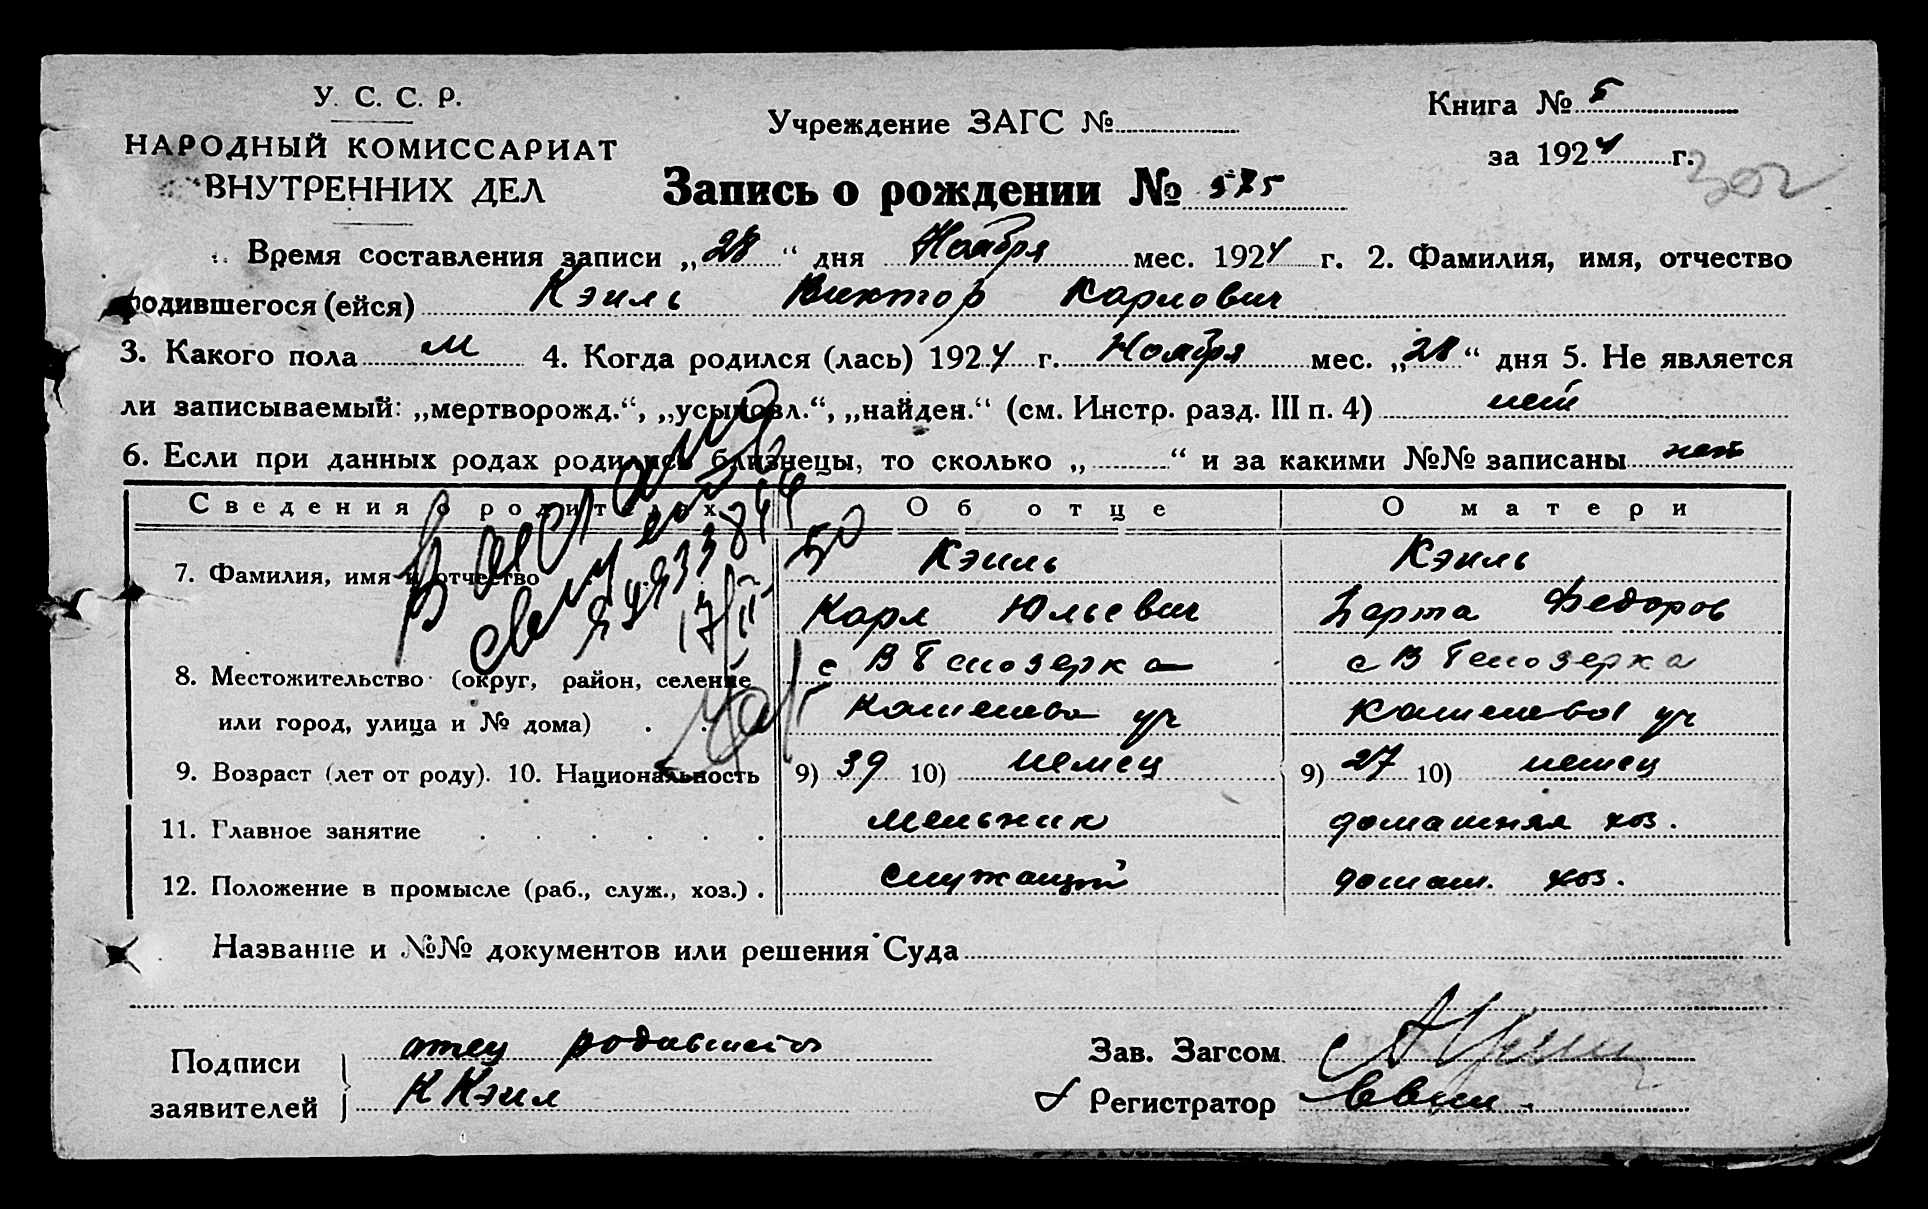 У. С. С. Р.
НАРОДНЫЙ КОМИССАРИАТ
ВНУТРЕННИХ ДЕЛ
Учреждение ЗАГС №
Книга № 5
за 1924 г.
302
Запись о рождении № 575
Время составления записи „28“ дня Ноября мес. 1924 г. 2. Фамилия, имя, отчество
родившегося (ейся) Кэиль Виктор Карлович
3. Какого пола м 4. Когда родился (лась) 1924 г. Ноября мес. „28“ дня 5. Не является
ли записываемый: „мертворожд.“, „усыновл.“, „найден.“ (см. Инстр. разд. III п. 4) нет
6. Если при данных родах родились близнецы, то сколько „ “ и за какими №№ записаны нет
Сведения о родителях Об отце О матери
7. Фамилия, имя и отчество Кэиль Кэиль
Карл Юльевич Берта Федоров
8. Местожительство (округ, район, селение с В Белозерка с В Белозерка
или город, улица и № дома)
9. Возраст (лет от роду). 10. Национальность 9) 39 10) немец 9) 27 10) немец
11. Главное занятие мельник домашняя хоз.
12. Положение в промысле (раб., служ., хоз.) служащий домаш. хоз.
Название и №№ документов или решения Суда
Подписи заявителей
отец родившегося
К Кэил
Зав. Загсом
Регистратор